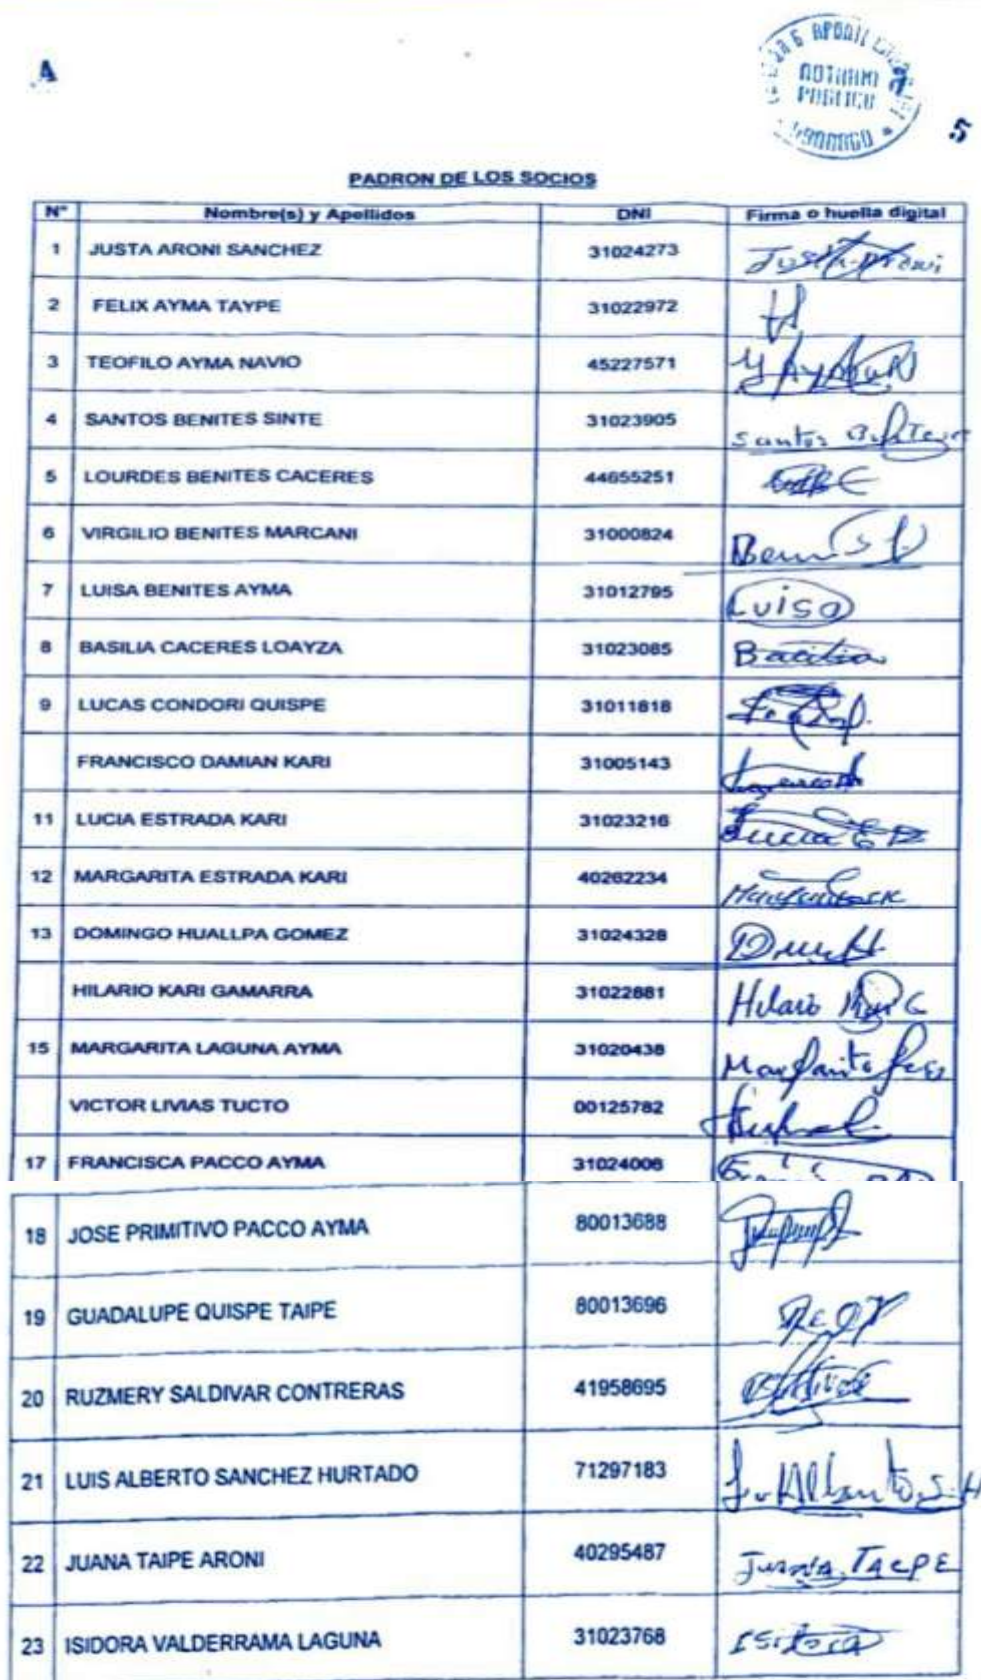 A
NOTARIO
PUBLICO
5
PADRON DE LOS SOCIOS
N° Nombre(s) y Apellidos DNI Firma o huella digital
1 JUSTA ARONI SANCHEZ 31024273 Justa Aroni
2 FELIX AYMA TAYPE 31022972
3 TEOFILO AYMA NAVIO 45227571
4 SANTOS BENITES SINTE 31023905 Santos
5 LOURDES BENITES CACERES 44655251
6 VIRGILIO BENITES MARCANI 31000824
7 LUISA BENITES AYMA 31012795 Luisa
8 BASILIA CACERES LOAYZA 31023085 Bacilia
9 LUCAS CONDORI QUISPE 31011818
FRANCISCO DAMIAN KARI 31005143
11 LUCIA ESTRADA KARI 31023216 Lucia
12 MARGARITA ESTRADA KARI 40262234
13 DOMINGO HUALLPA GOMEZ 31024328
HILARIO KARI GAMARRA 31022881 Hilario
15 MARGARITA LAGUNA AYMA 31020438 Margarita
VICTOR LIVIAS TUCTO 00125782
17 FRANCISCA PACCO AYMA 31024006
18 JOSE PRIMITIVO PACCO AYMA 80013688
19 GUADALUPE QUISPE TAIPE 80013696
20 RUZMERY SALDIVAR CONTRERAS 41958695
21 LUIS ALBERTO SANCHEZ HURTADO 71297183
22 JUANA TAIPE ARONI 40295487 Juana TAIPE
23 ISIDORA VALDERRAMA LAGUNA 31023768